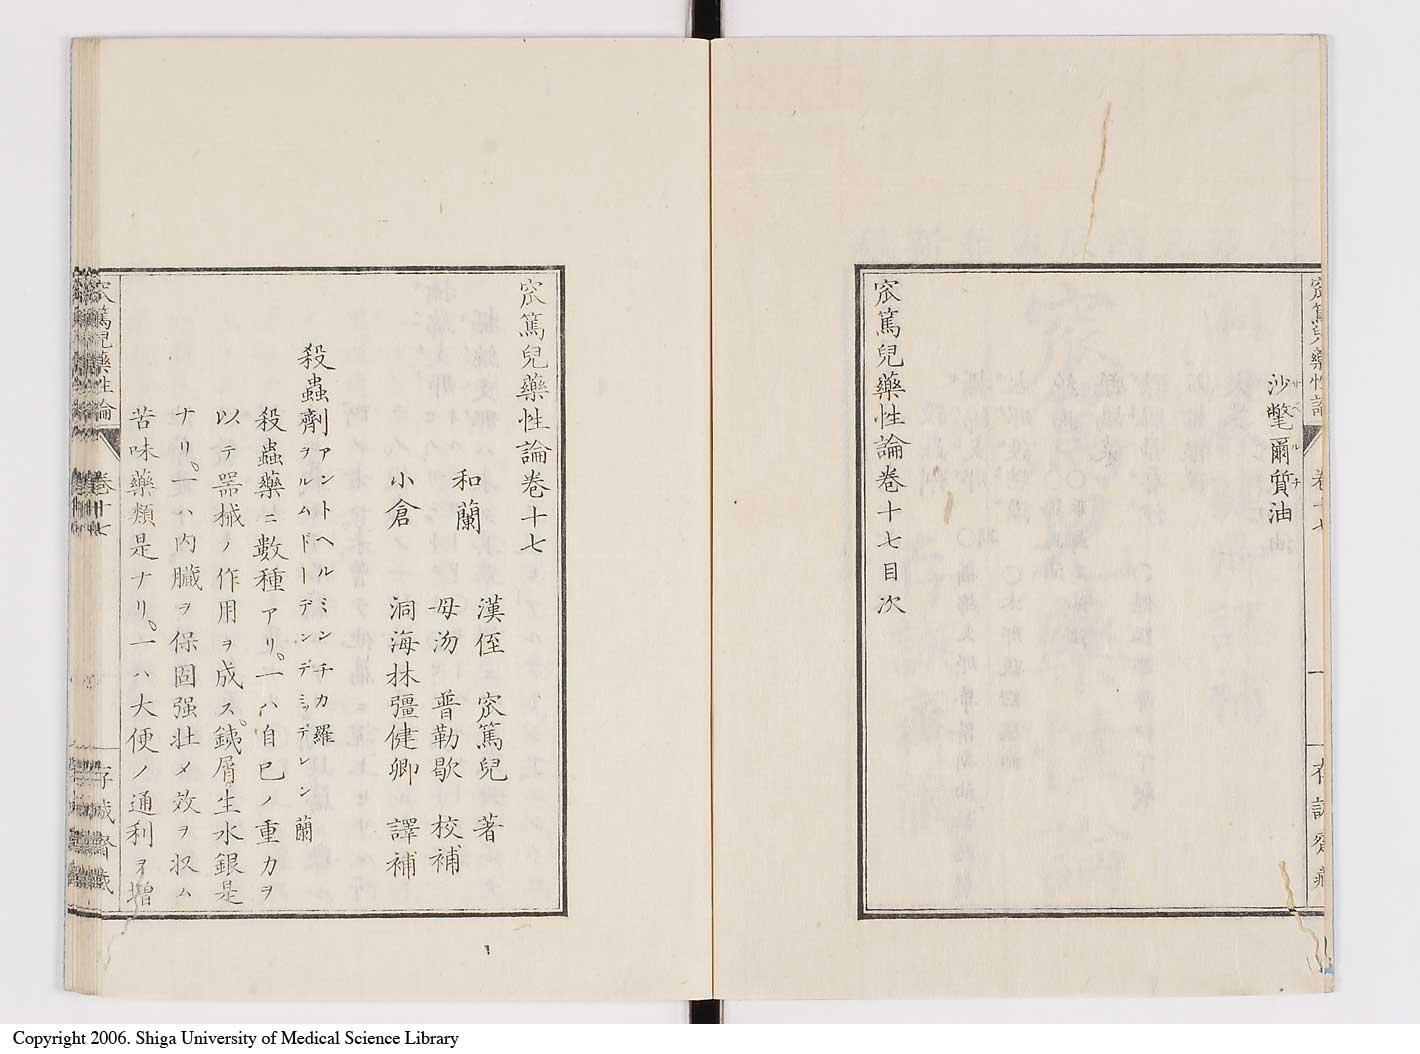 沙毞爾質油
サベルチ
油
窊篤兒藥性論卷十七目次
窊篤兒藥性論
卷十七
一
存誠齋藏
窊篤兒藥性論卷十七
漢侄 窊篤兒 著
和蘭
毋沕 普勒歇 校補
小倉
洞海林彊健卿 譯補
殺蟲劑アントヘルミンチカ羅
ヲルムドーデンデミッデレン蘭
殺蟲藥ニ數種アリ。一ハ自己ノ重力ヲ
以テ器械ノ作用ヲ成ス。銕屑生水銀是
ナリ。一ハ內臟ヲ保固强壯メ效ヲ収ム
苦味藥類是ナリ。一ハ大便ノ通利ヲ增
窊篤兒藥性論
卷十七
存誠齋藏
Copyright 2006. Shiga University of Medical Science Library